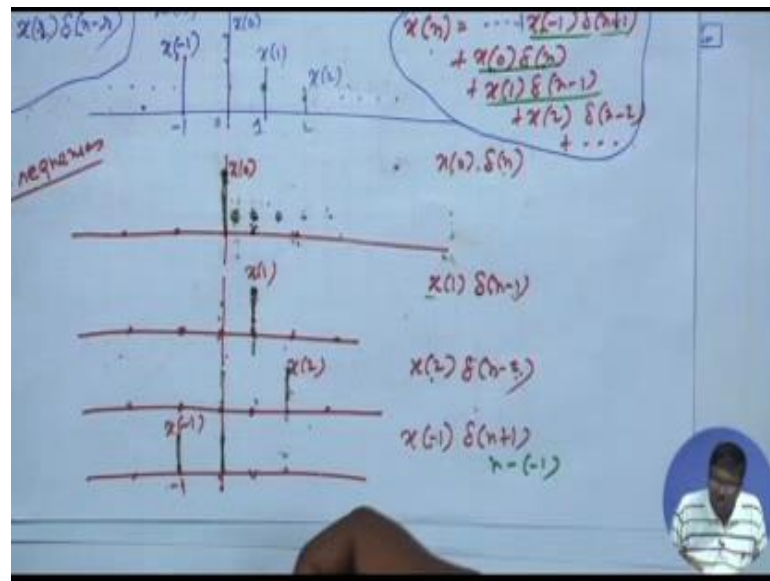 x(r) δ(n-r)
x(0)
x(-1)
x(1)
x(2)
-1 0 1 2
x(n) = ····+x(-1) δ(n+1)
+ x(0) δ(n)
+ x(1) δ(n-1)
+ x(2) δ(n-2)
+ ···
sequences
x(0)
x(0). δ(n)
x(1)
x(1) δ(n-1)
x(2)
x(2) δ(n-2)
x(-1)
x(-1) δ(n+1)
n-(-1)
-1